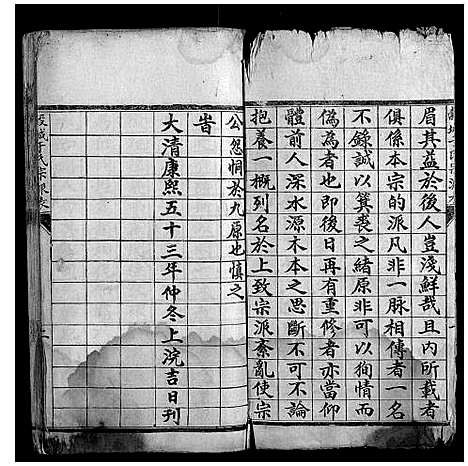 眉其益於後人豈淺鮮哉且內所載者
俱係本宗的派凡非一脉相傳者一名
不錄誠以箕裘之緒原非可以徇情而
偽為者也即後日再有重修者亦當仰
體前人深水源木本之思斷不可不論
抱養一概列名於上致宗派紊亂使宗
公怨恫於九原也慎之
旹
大清康熙五十三年仲冬上浣吉日刊